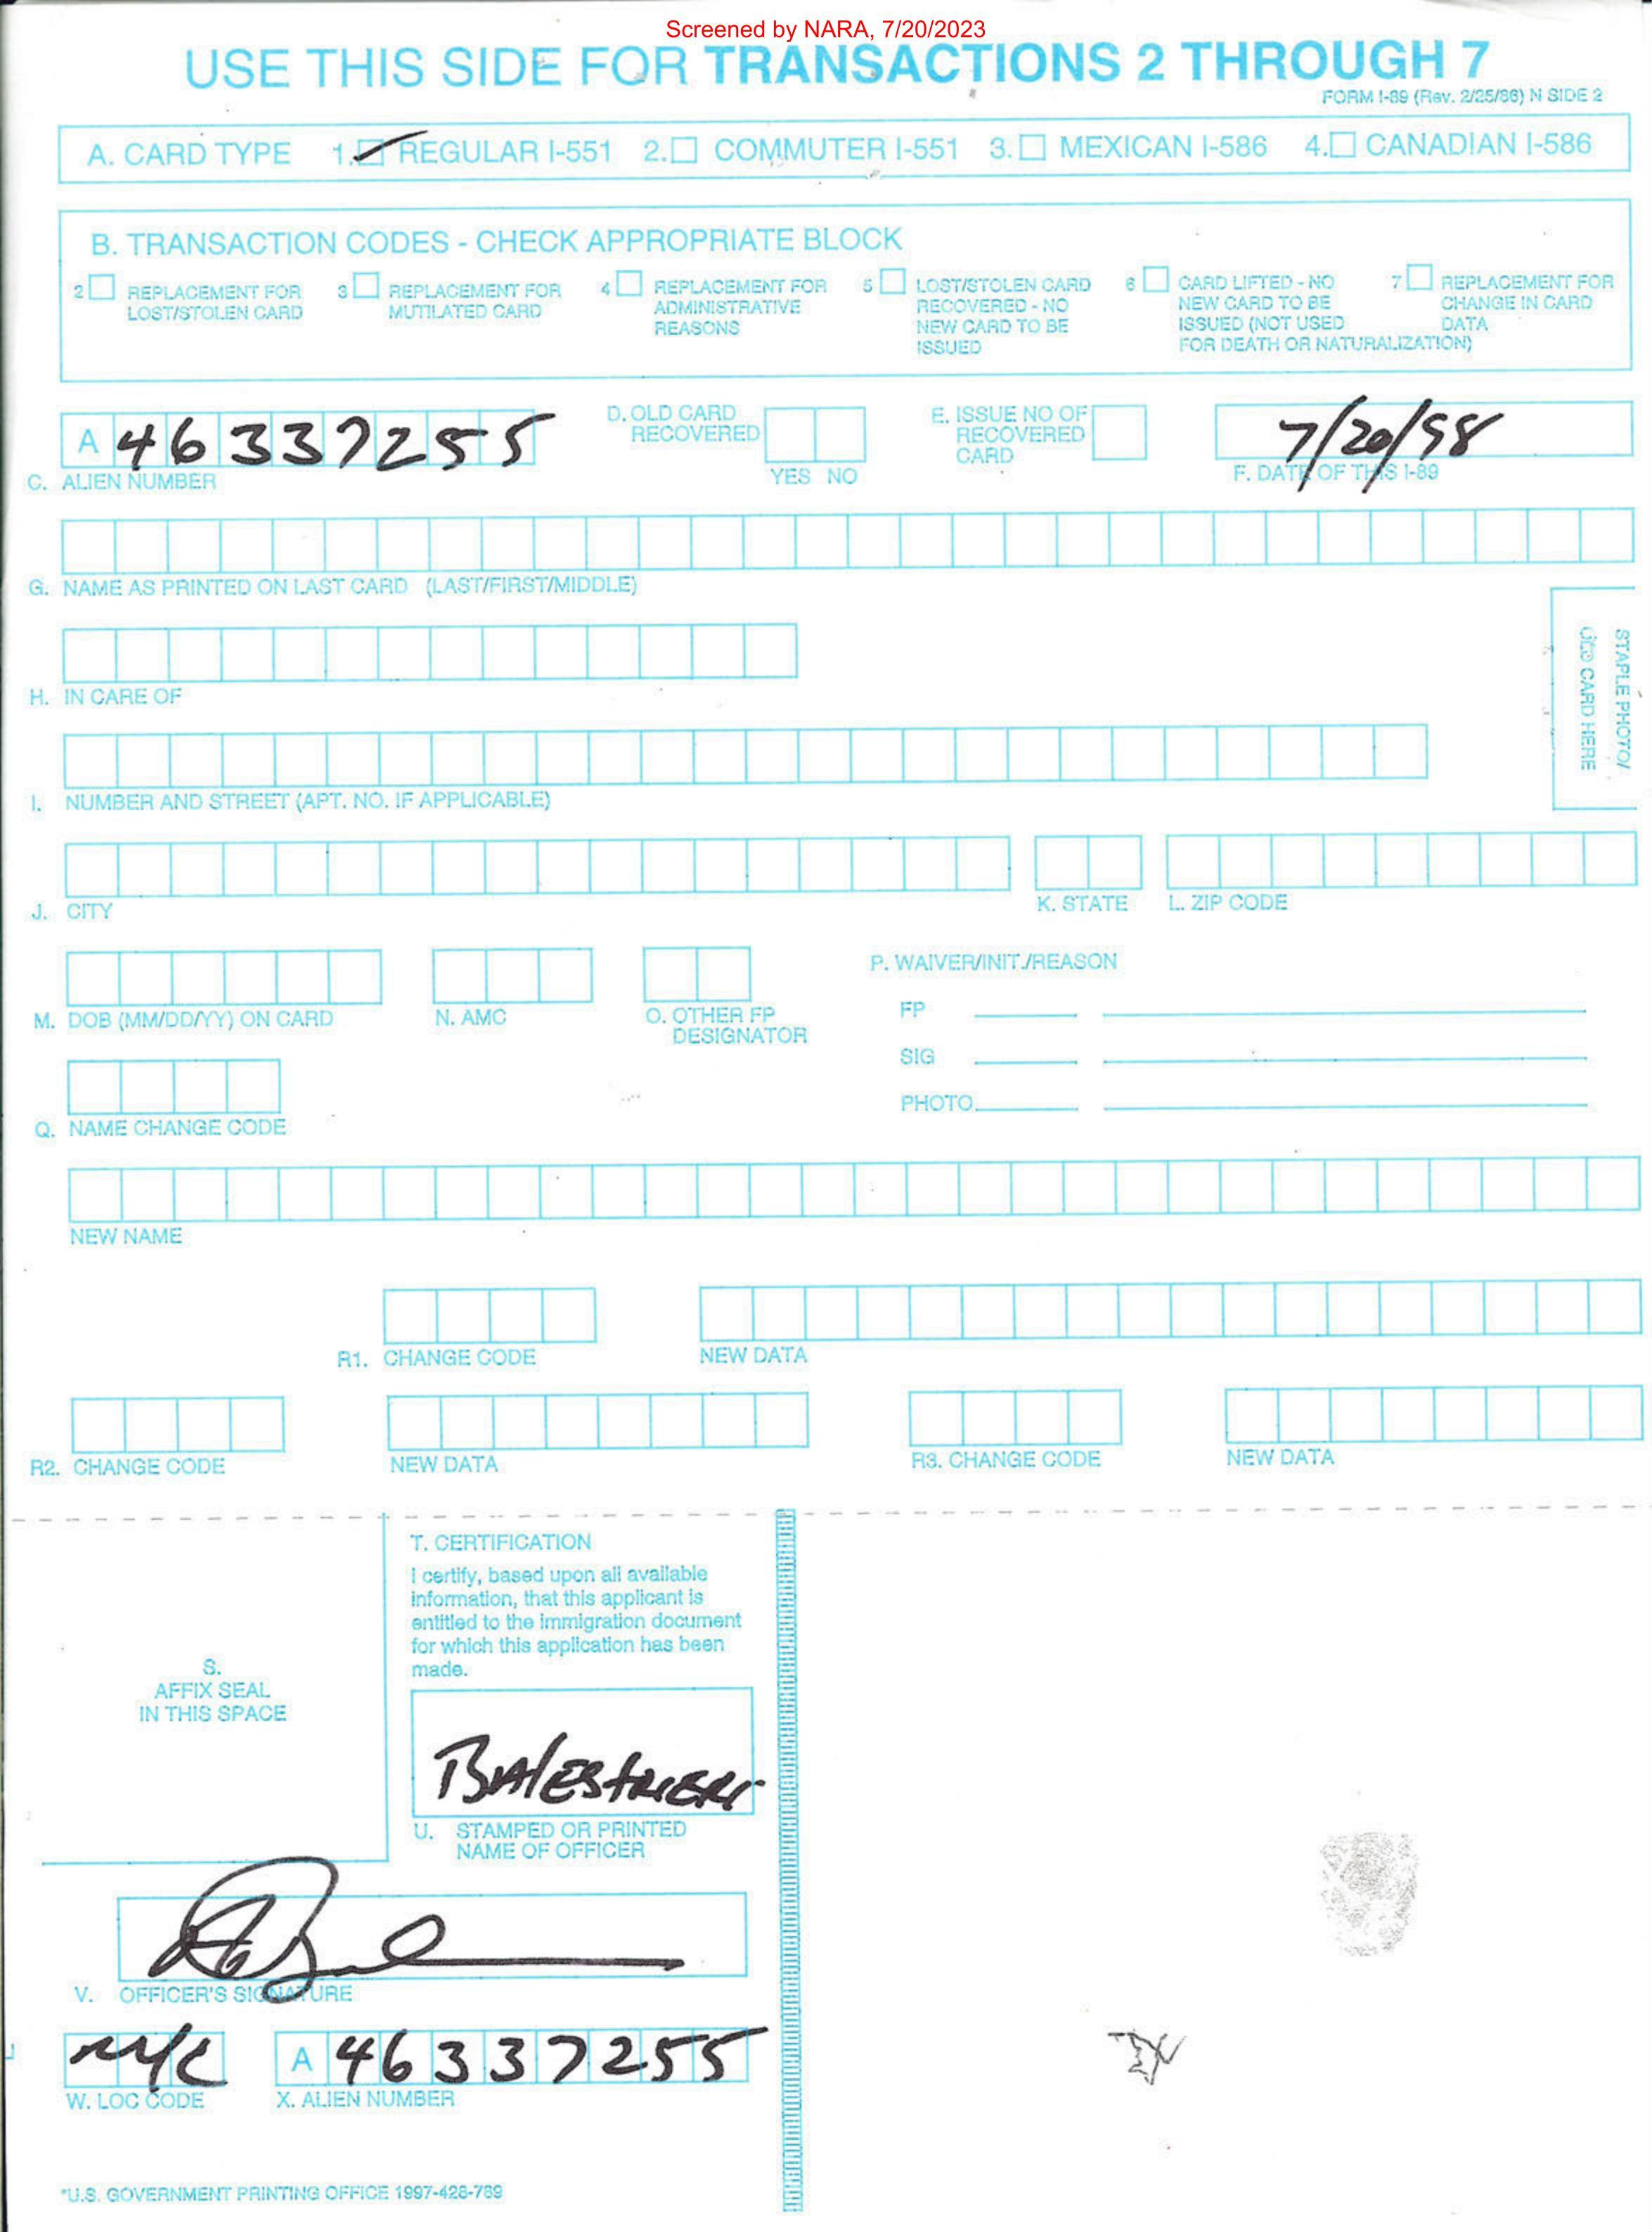 Screened by NARA, 7/20/2023
USE THIS SIDE FOR TRANSACTIONS 2 THROUGH 7
FORM I-89 (Rev. 2/25/86) N SIDE 2
A. CARD TYPE 1. REGULAR I-551 2. COMMUTER I-551 3. MEXICAN I-586 4. CANADIAN I-586
B. TRANSACTION CODES - CHECK APPROPRIATE BLOCK
2 REPLACEMENT FOR LOST/STOLEN CARD
3 REPLACEMENT FOR MUTILATED CARD
4 REPLACEMENT FOR ADMINISTRATIVE REASONS
5 LOST/STOLEN CARD RECOVERED - NO NEW CARD TO BE ISSUED
6 CARD LIFTED - NO NEW CARD TO BE ISSUED (NOT USED FOR DEATH OR NATURALIZATION)
7 REPLACEMENT FOR CHANGE IN CARD DATA
A 46337255
C. ALIEN NUMBER
D. OLD CARD RECOVERED
YES NO
E. ISSUE NO OF RECOVERED CARD
7/20/98
F. DATE OF THIS I-89
G. NAME AS PRINTED ON LAST CARD (LAST/FIRST/MIDDLE)
STAPLE PHOTO/
OLD CARD HERE
H. IN CARE OF
I. NUMBER AND STREET (APT. NO. IF APPLICABLE)
J. CITY
K. STATE
L. ZIP CODE
M. DOB (MM/DD/YY) ON CARD
N. AMC
O. OTHER FP DESIGNATOR
P. WAIVER/INIT./REASON
FP
SIG
PHOTO
Q. NAME CHANGE CODE
NEW NAME
R1. CHANGE CODE
NEW DATA
R2. CHANGE CODE
NEW DATA
R3. CHANGE CODE
NEW DATA
S.
AFFIX SEAL
IN THIS SPACE
T. CERTIFICATION
I certify, based upon all available
information, that this applicant is
entitled to the immigration document
for which this application has been
made.
BALESTRIERI
U. STAMPED OR PRINTED
NAME OF OFFICER
V. OFFICER'S SIGNATURE
NYC
W. LOC CODE
A 46337255
X. ALIEN NUMBER
*U.S. GOVERNMENT PRINTING OFFICE 1997-428-769